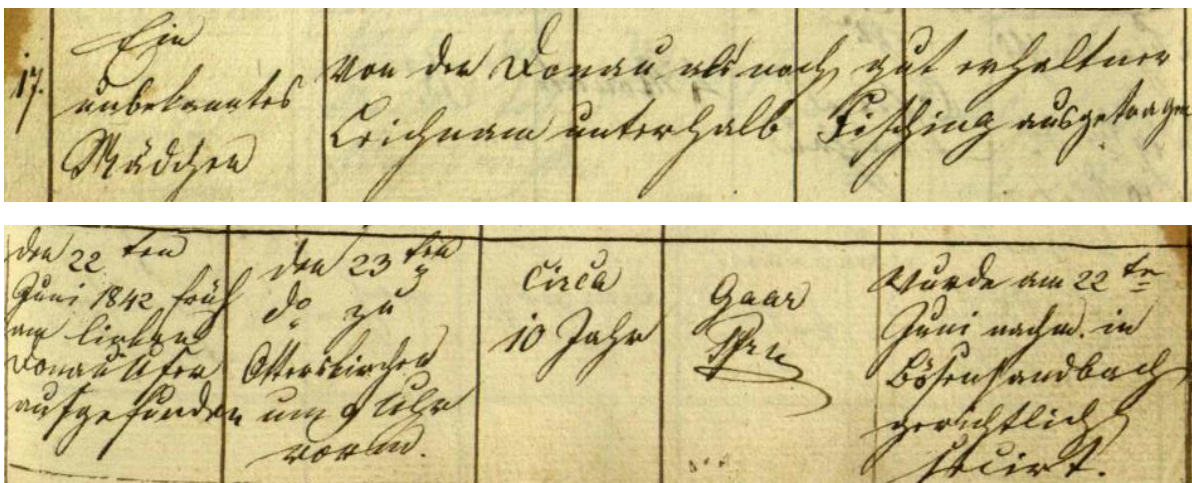 17.
Ein
unbekanntes
Mädchen
von der Donau als noch gut erhaltner
Leichnam unterhalb Fisching ausgetragen
den 22 ten
Juni 1842 früh
am linken
Donau Ufer
aufgefunden
den 23 ten
do zu
Otterskirchen
um 9 Uhr
vorm.
Circa
10 Jahr
Gaar
Pfr
Wurde am 22 te
Juni nachm. in
Bösensandbach
gerichtlich
secirt.